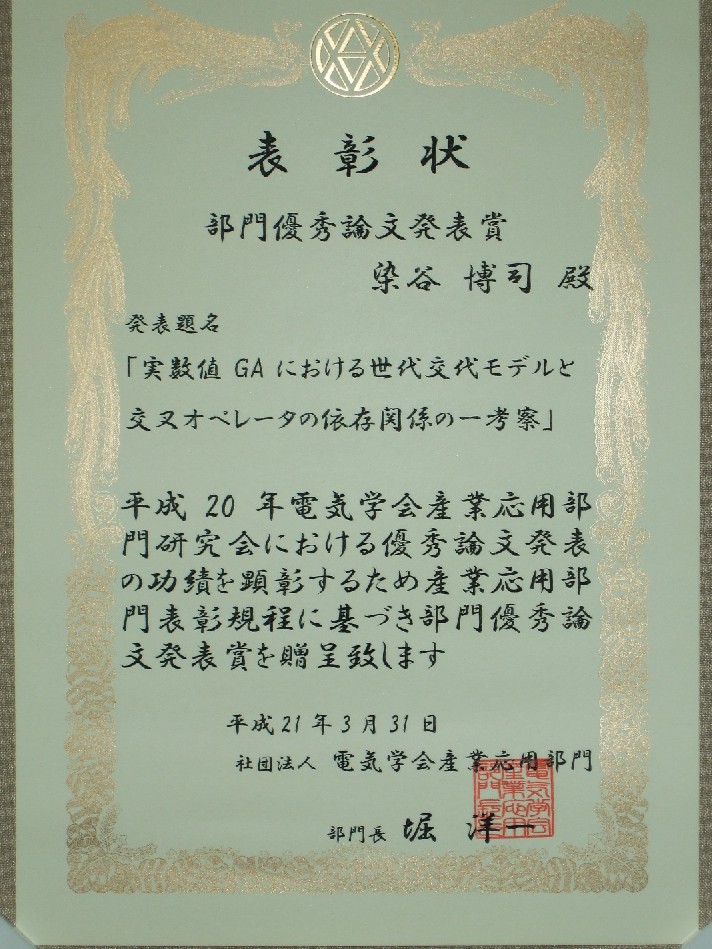 表彰状
部門優秀論文発表賞
染谷 博司 殿
発表題名
「実数値 GA における世代交代モデルと
交叉オペレータの依存関係の一考察」
平成 20 年電気学会産業応用部
門研究会における優秀論文発表
の功績を顕彰するため産業応用部
門表彰規程に基づき部門優秀論
文発表賞を贈呈致します
平成21年3月31日
社団法人 電気学会産業応用部門
部門長 堀 洋一
電気学会
産業応用
部門長印